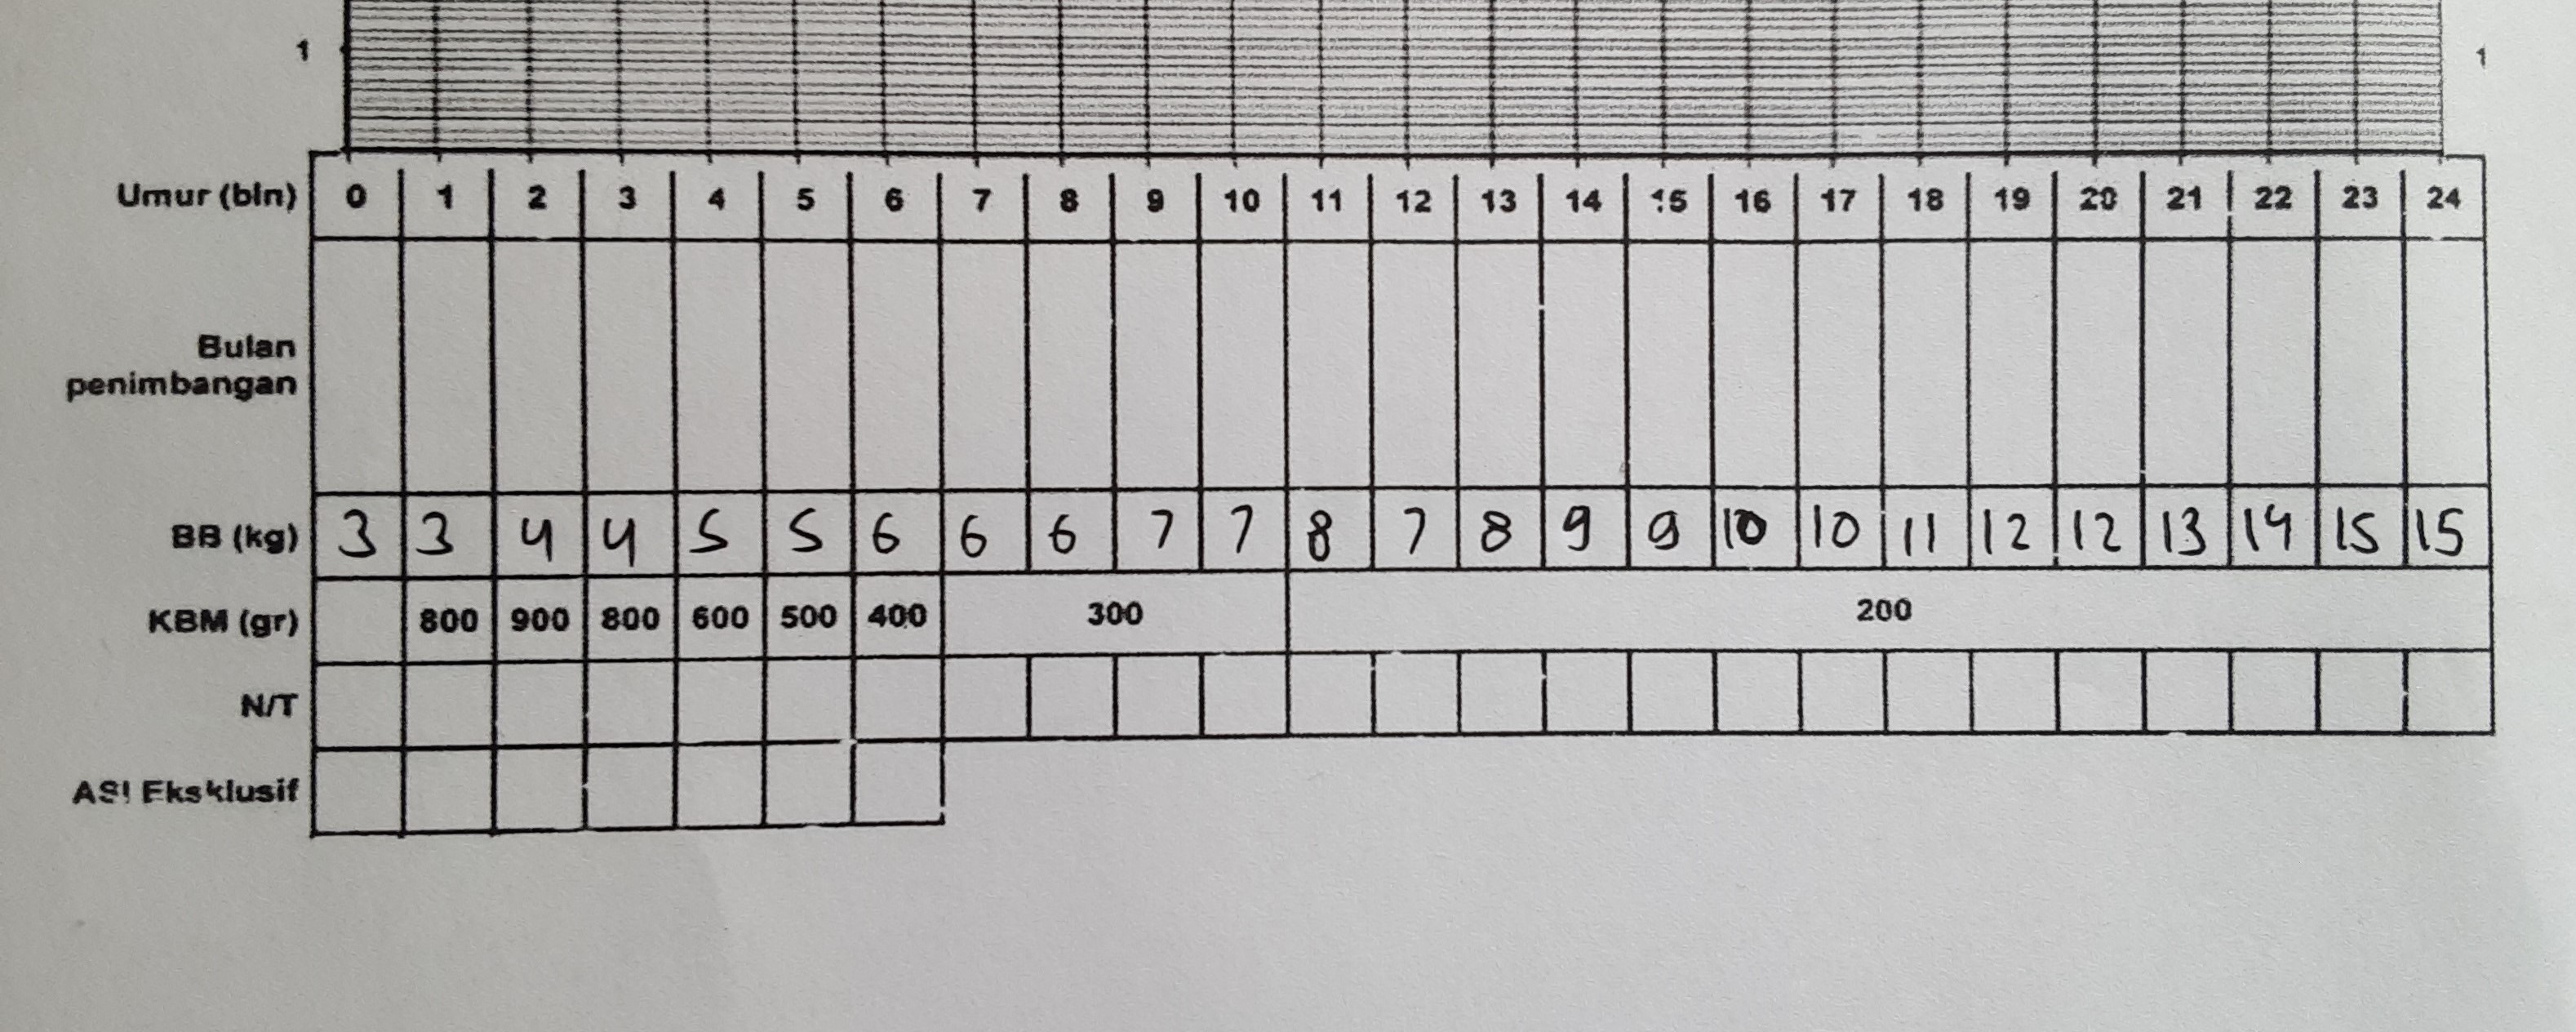 1 1
Umur (bln) 0 1 2 3 4 5 6 7 8 9 10 11 12 13 14 15 16 17 18 19 20 21 22 23 24
Bulan
penimbangan
BB (kg) 3 3 4 4 5 5 6 6 6 7 7 8 7 8 9 9 10 10 11 12 12 13 14 15 15
KBM (gr) 800 900 800 600 500 400 300 200
N/T
ASI Eksklusif